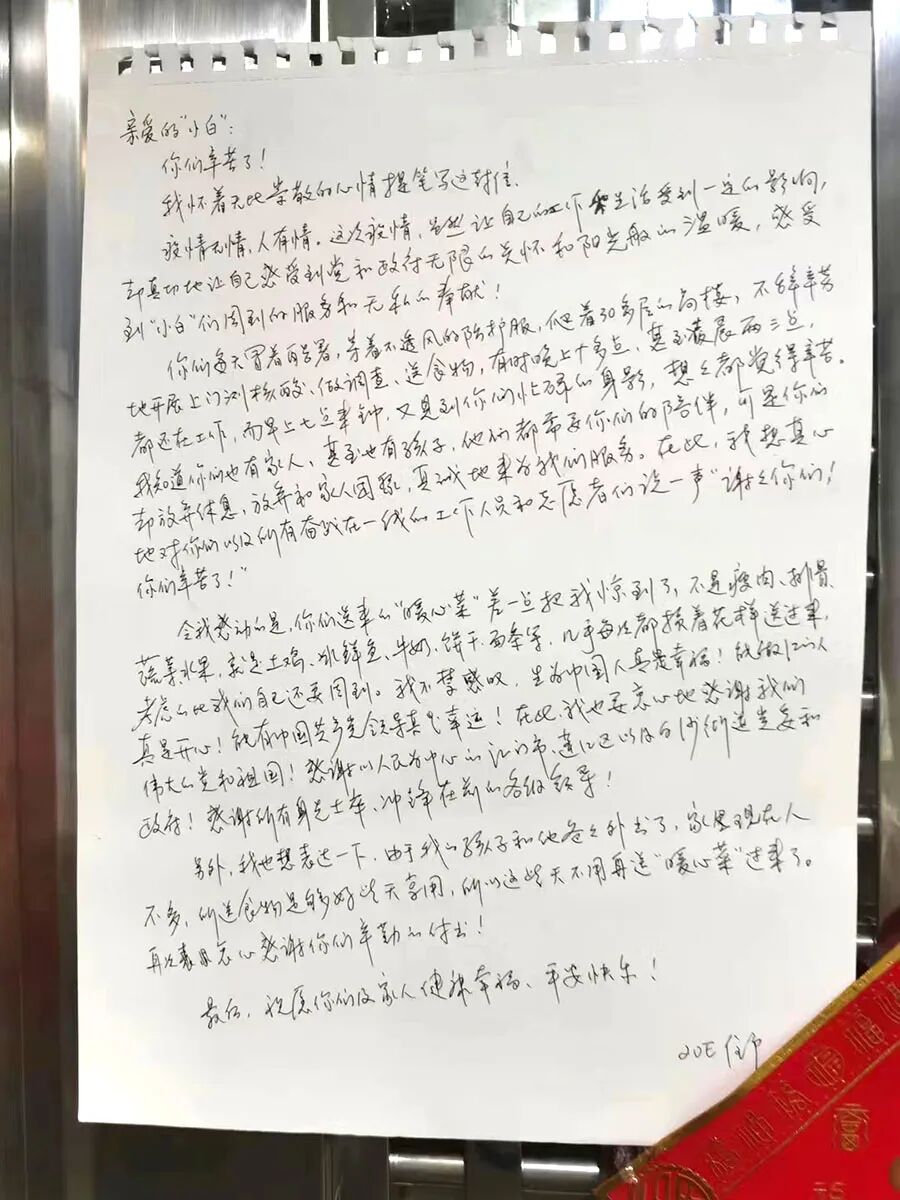 亲爱的"小白"：
你们辛苦了！
我怀着无比崇敬的心情提笔写这封信.
疫情无情，人有情。这次疫情，虽然让自己的工作和生活受到一定的影响，
却真切地让自己感受到党和政府无限的关怀和阳光般的温暖，感受
到"小白"们周到的服务和无私的奉献！
你们每天冒着酷暑，穿着不透风的防护服，爬着30多层的高楼，不辞辛苦
地开展上门测核酸、做调查、送食物，有时晚上十多点、甚至凌晨两三点，
都还在工作，而早上七点来钟，又见到你们忙碌的身影，想想都觉得辛苦。
我知道你们也有家人、甚至也有孩子，他们都需要你们的陪伴，可是你们
却放弃休息、放弃和家人团聚，真诚地来为我们服务。在此，我想真心
地对你们以及所有奋战在一线的工作人员和志愿者们说一声"谢谢你们！
你们辛苦了！"
令我感动的是，你们送来的"暖心菜"差一点把我惊到了，不是瘦肉、排骨、
蔬菜水果，就是土鸡、冰鲜鱼、牛奶、饼干、面条等，几乎每次都换着花样送过来，
考虑的比我们自己还要周到。我不禁感叹，生为中国人真是幸福！能做江门人
真是开心！能有中国共产党领导真是幸运！在此，我也要衷心地感谢我们
伟大的党和祖国！感谢以人民为中心的江门市、蓬江区以及白沙街道党委和
政府！感谢所有身先士卒、冲锋在前的各级领导！
另外，我也想表达一下，由于我的孩子和他爸爸外出了，家里现在人
不多，所送食物足够好些天享用，所以这些天不用再送"暖心菜"过来了。
再次表示衷心感谢你们辛勤的付出！
最后，祝愿你们及家人健康幸福、平安快乐！
20E 住户